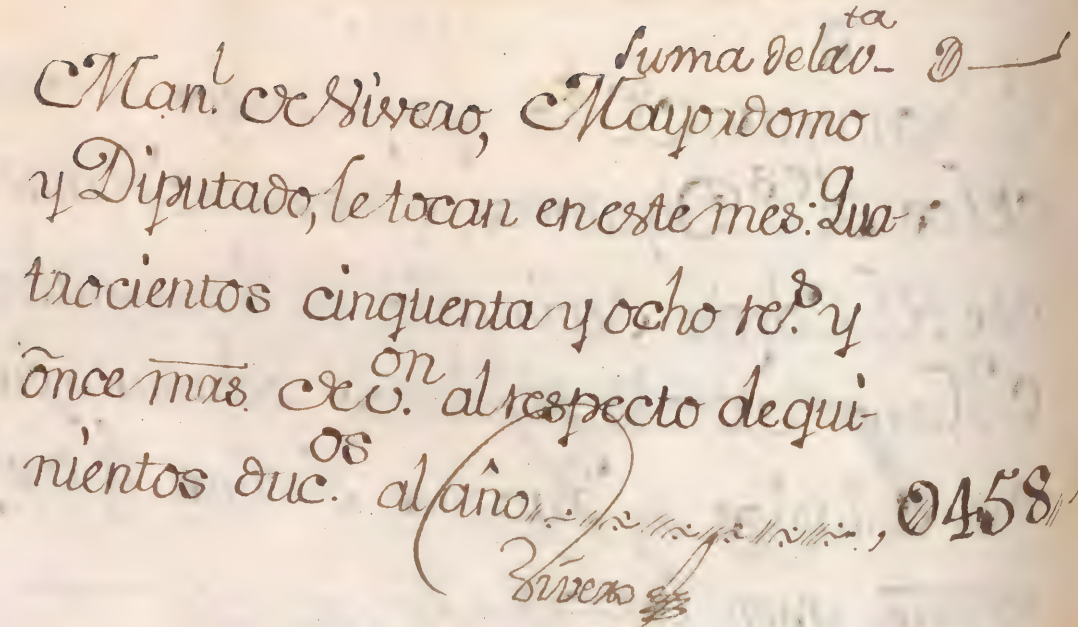 Suma de la v.ta D
Man.l de Vivero, Mayordomo
y Diputado, le tocan en este mes: Qua-
trocientos cinquenta y ocho r.s y
once mrs. de v.on al respecto de qui-
nientos duc.os al año, D458
Vivero